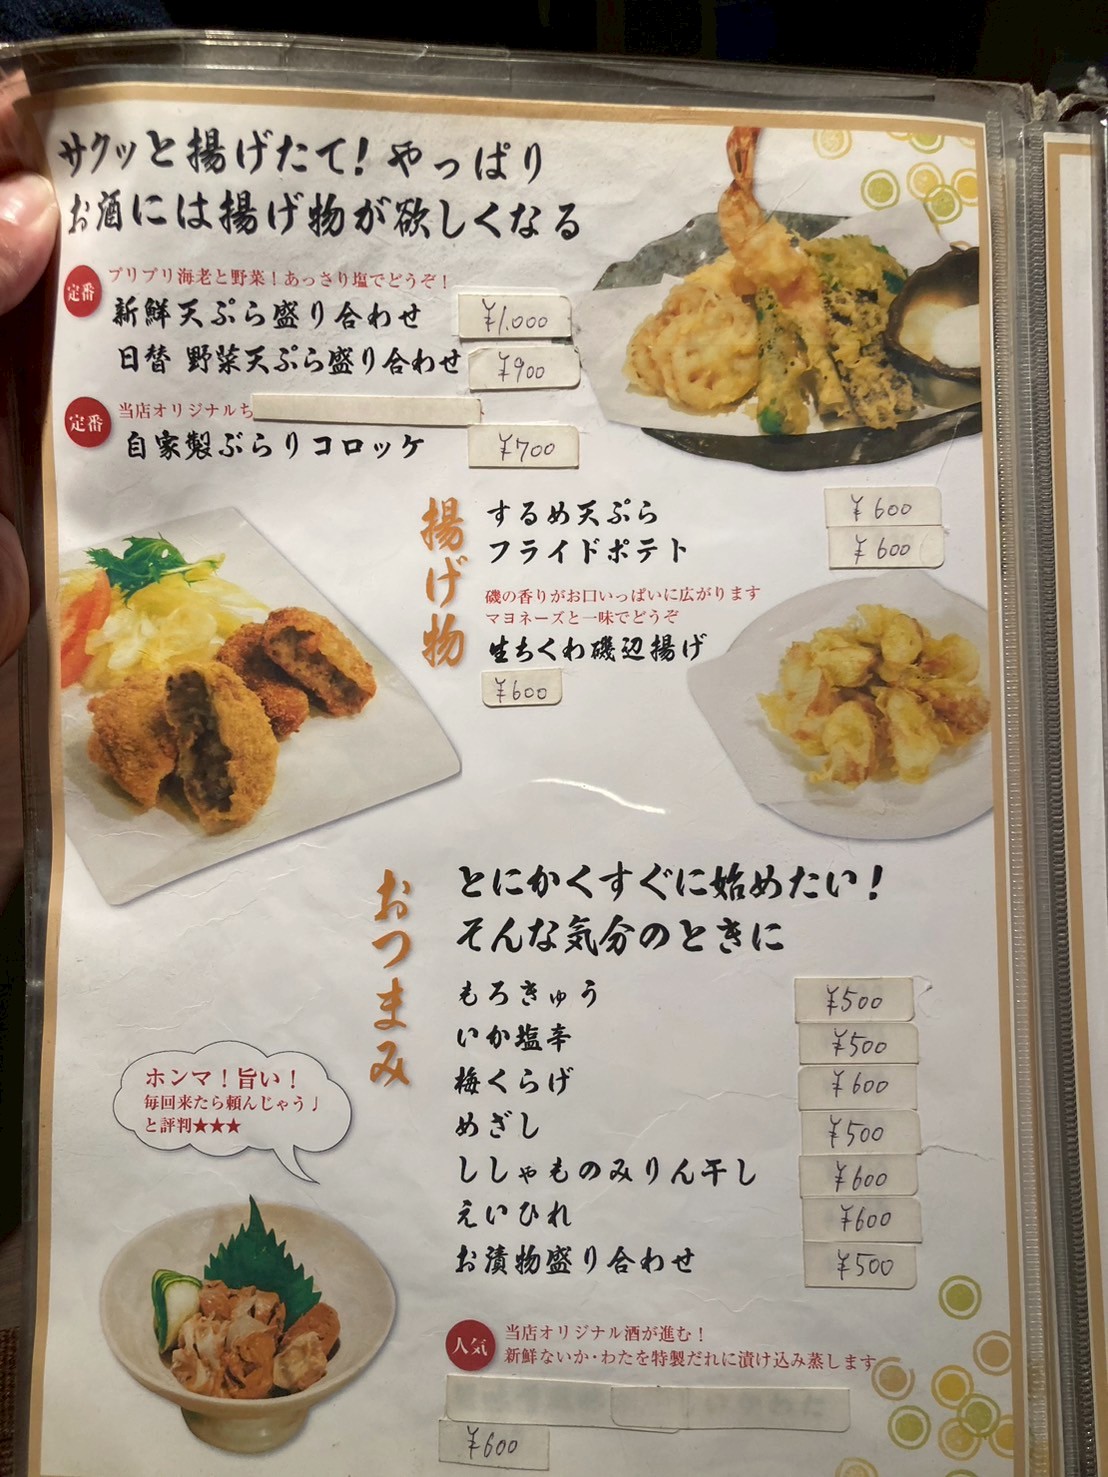 サクッと揚げたて!やっぱり
お酒には揚げ物が欲しくなる
定番
プリプリ海老と野菜!あっさり塩でどうぞ!
新鮮天ぷら盛り合わせ ¥1,000
日替 野菜天ぷら盛り合わせ ¥900
定番
当店オリジナルち
自家製ぶらりコロッケ ¥700
揚げ物
するめ天ぷら ¥600
フライドポテト ¥600
磯の香りがお口いっぱいに広がります
マヨネーズと一味でどうぞ
生ちくわ磯辺揚げ
¥600
おつまみ
とにかくすぐに始めたい!
そんな気分のときに
もろきゅう ¥500
いか塩辛 ¥500
梅くらげ ¥600
めざし ¥500
ししゃものみりん干し ¥600
えいひれ ¥600
お漬物盛り合わせ ¥500
ホンマ!旨い!
毎回来たら頼んじゃう♩
と評判★★★
人気
当店オリジナル酒が進む!
新鮮ないか・わたを特製だれに漬け込み蒸します
¥600